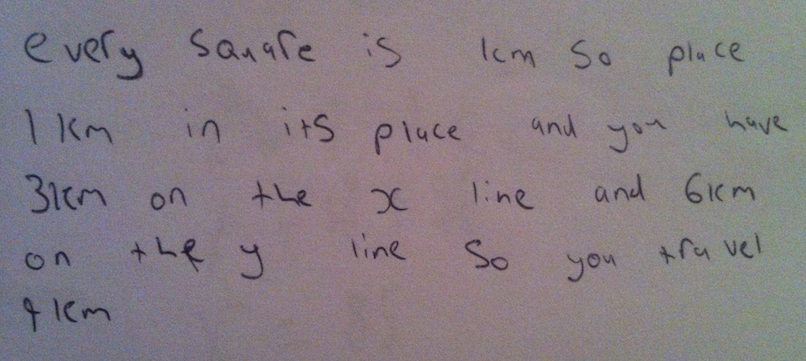 every square is 1km so place
1km in its place and you have
3km on the x line and 6km
on the y line so you travel
9km